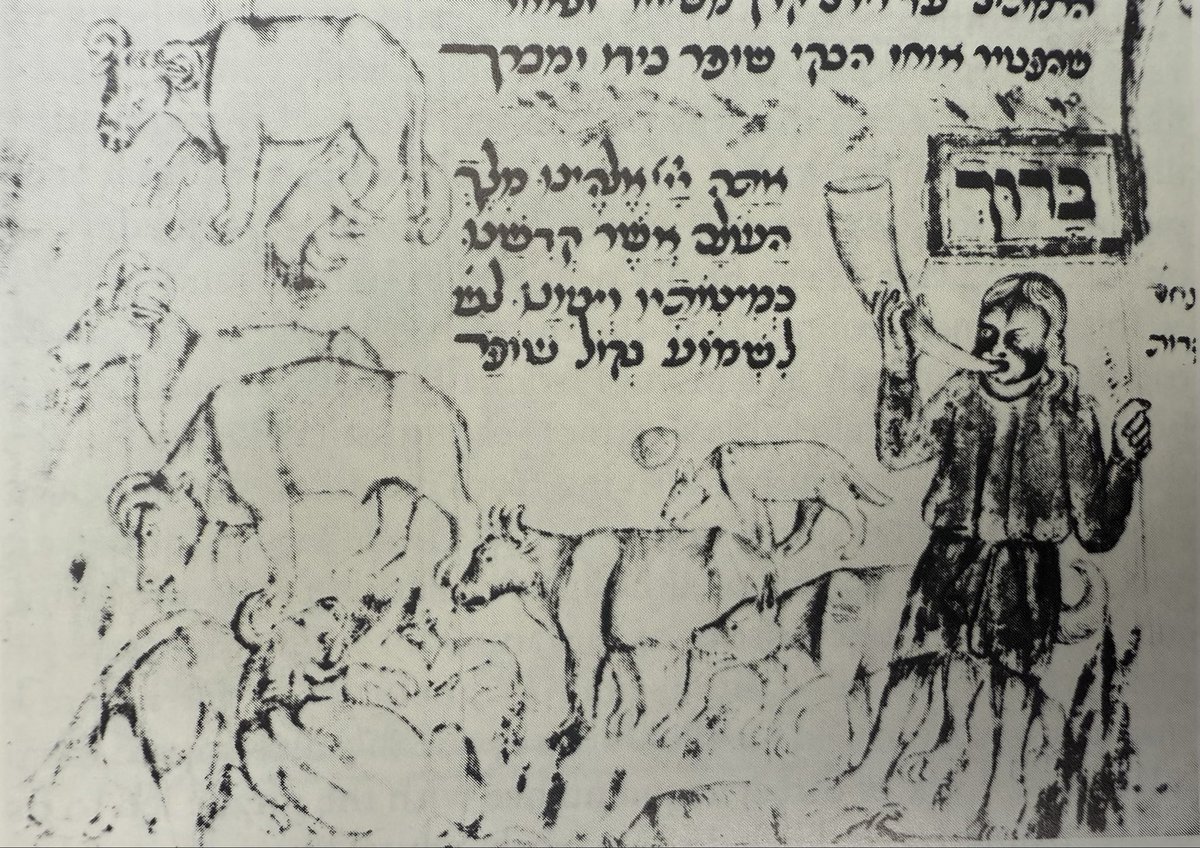 שהפטיר אוחז הבקי שופר בידו ומברך
ברוך
אתה יי אלהינו מלך
העולם אשר קדשנו
במיצותיו וציונו לש
לשמוע בקול שופר